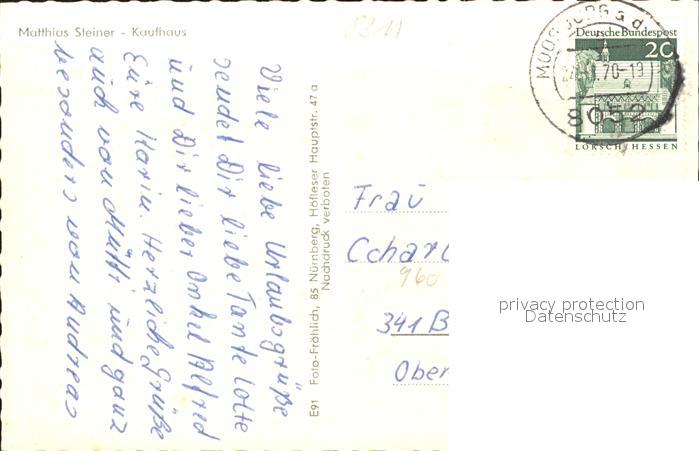 Matthias Steiner - Kaufhaus
8311
Viele liebe Urlaubsgrüße
sendet Dir liebe Tante Lotte
und Dir lieber Onkel Alfred
Eure Karin. Herzliche Grüße
auch von Mutti und ganz
besonders von Andreas
E91 Foto-Fröhlich, 85 Nürnberg, Höfleser Hauptstr. 47a
Nachdruck verboten
MOOSBURG a d
70-19
8052
Deutsche Bundespost
20
LORSCH/HESSEN
Frau
960
341 B
Ober
privacy protection
Datenschutz